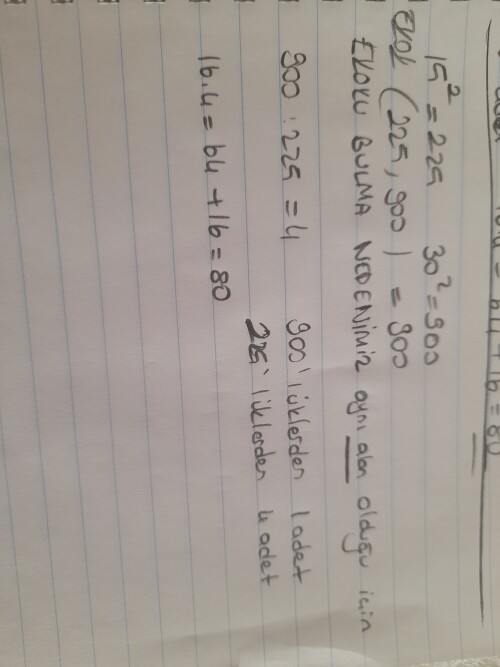 16 = 80
15² = 225 30² = 900
EKOK (225, 900) = 900
EKOKU BULMA NEDENİMİZ aynı alan olduğu için
900 : 225 = 4 900'lüklerden 1 adet
225'liklerden 4 adet
16.4 = 64 + 16 = 80